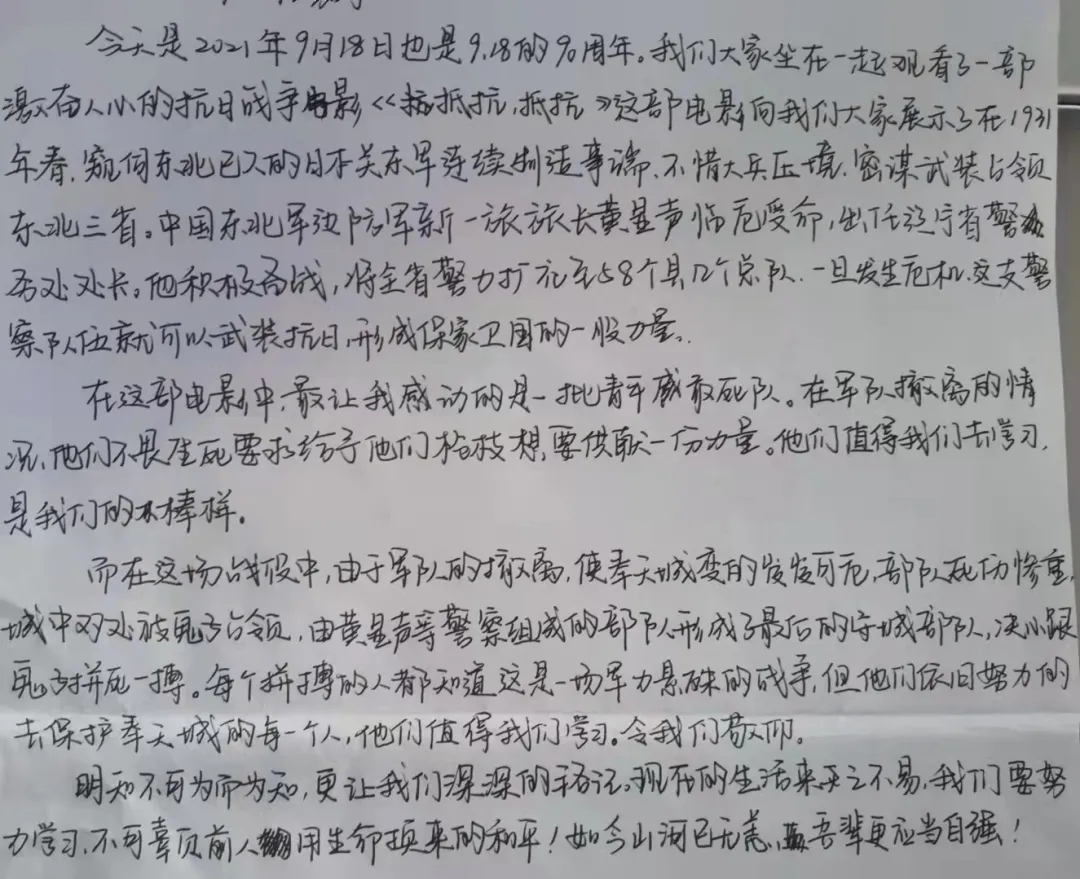 今天是2021年9月18日也是9.18的90周年。我们大家坐在一起观看了一部
激奋人心的抗日战争电影《抵抗,抵抗》这部电影向我们大家展示了在1931
年春,窥伺东北已久的日本关东军连续制造事端、不惜大兵压境,密谋武装占领
东北三省。中国东北军边防军新一旅旅长黄显声临危受命,出任辽宁省警
务处处长。他积极备战,将全省警力扩充至58个县12个总队.一旦发生危机,这支警
察队伍就可以武装抗日,形成保家卫国的一股力量.
在这部电影中,最让我感动的是一批青年威敢死队。在军队撤离的情
况,他们不畏生死要求给予他们枪枝想要供献一份力量。他们值得我们去学习,
是我们的棒样。
而在这场战役中,由于军队的撤离,使奉天城变的岌岌可危,部队死伤惨重,
城中多处被鬼子占领,由黄显声等警察组成的部队形成了最后的守城部队,决心跟
鬼子拼死一搏。每个拼搏的人都知道这是一场军力悬殊的战争,但他们依旧努力的
去保护奉天城的每一个人,他们值得我们学习。令我们敬仰。
明知不可为而为知,更让我们深深的铭记。现在的生活来之不易,我们要努
力学习,不可辜负前人用生命换来的和平!如今山河已无恙,吾辈更应当自强!